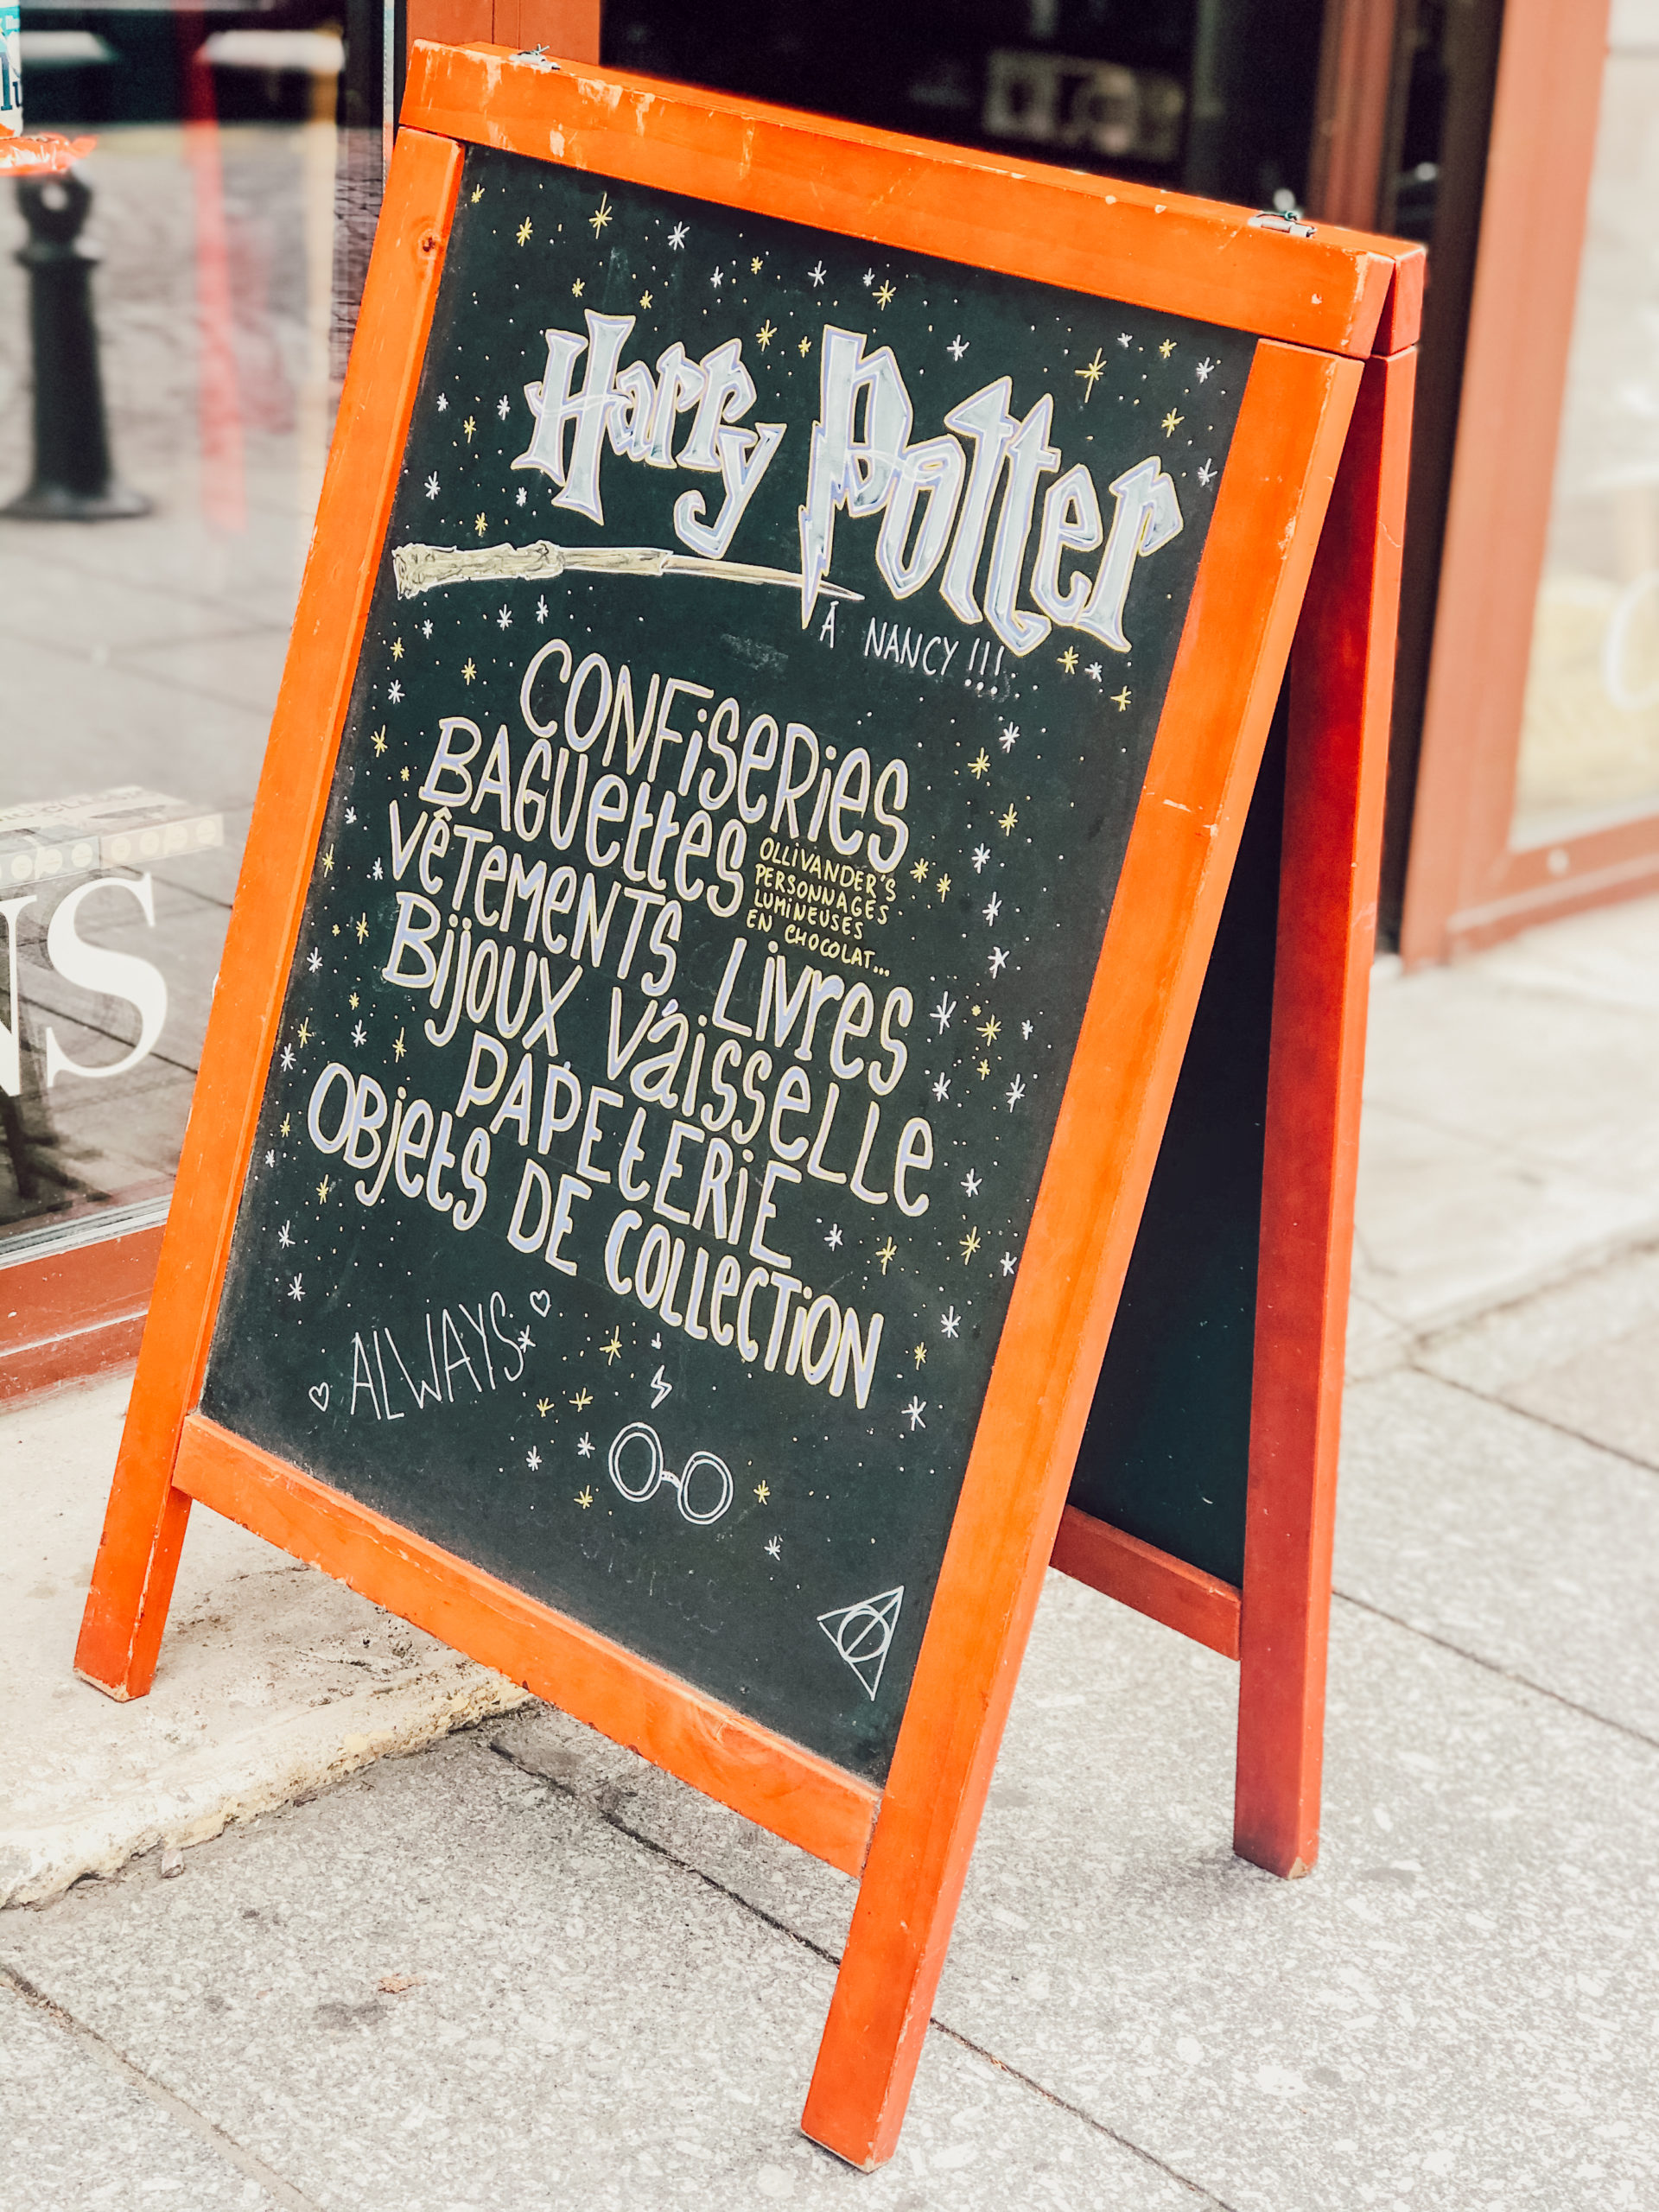 Harry Potter
À NANCY !!!
CONFiSeRies
BAGUettes
OLLiVANDER'S
PERSONNAGES
LUMiNEUSES
EN CHOCOLAT...
VÊTeMeNTS Livres
Bijoux Vaisselle
PAPEtERiE
OBjets DE COLLeCTiON
ALWAYS
NS